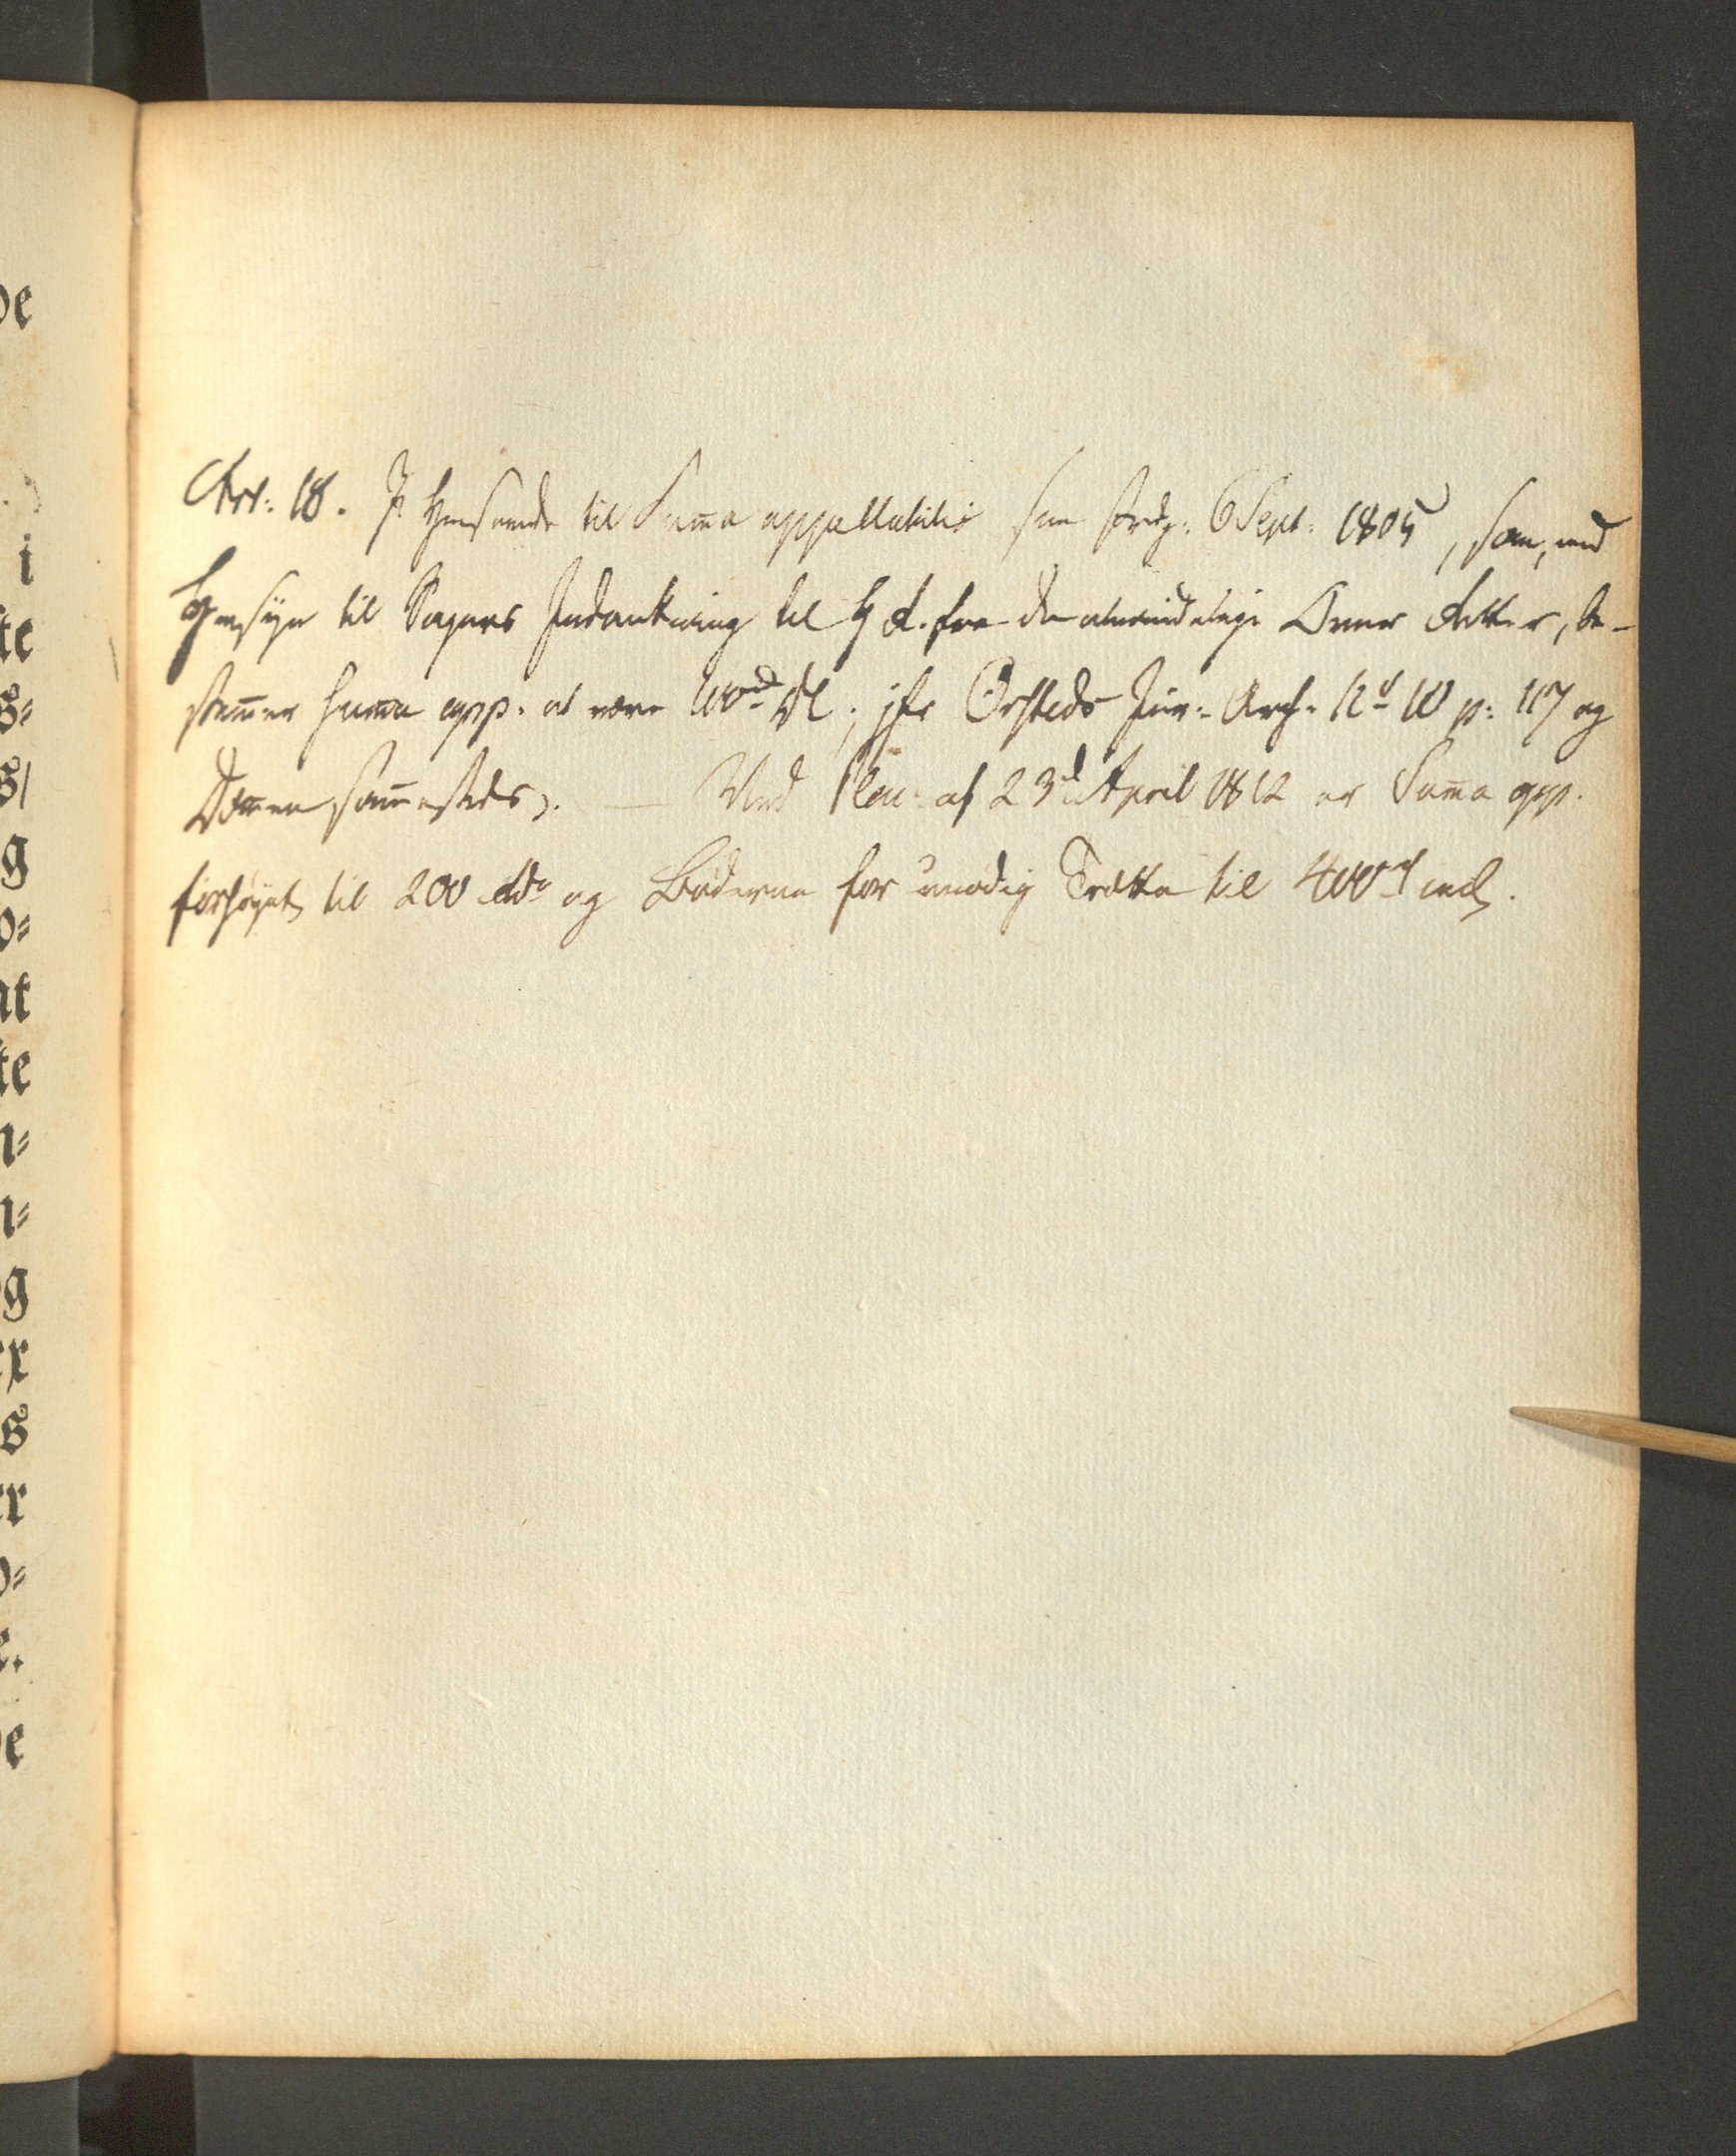 de
i
te
s-
s/
g
o-
at
te
n-
n-
og
er
s
er
o-
e.
de
Art: 18. I Henseende til Suma appellabilis see Frdg: 6 Sept: 1805, som, med
Hensÿn til Sagers Indankning til H R. fra de almindelige Over Retter, be-
stemer Suma app. at være 100 rd; jfr Ørsteds Jur: Arch: No 10 p: 117 og
Domen samesteds. — Ved Plac: af 23d April 1812 er Suma app.
forhøÿet til 200 rd og Bøderne for unødig Trætte til 400 rd incl.